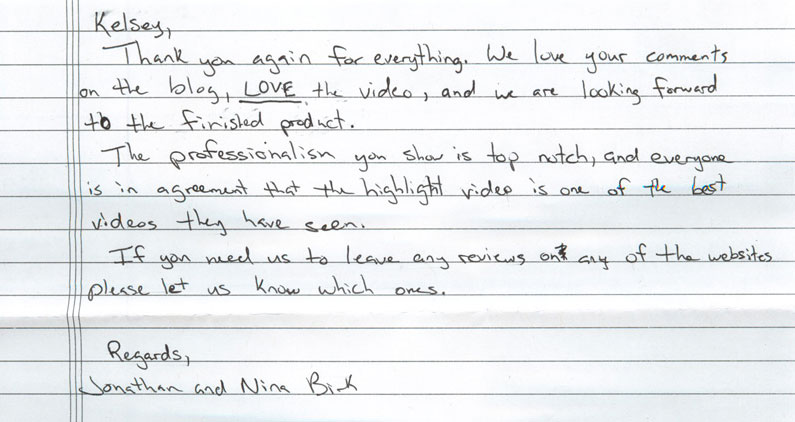 Kelsey,
Thank you again for everything. We love your comments
on the blog, LOVE the video, and we are looking forward
to the finished product.
The professionalism you show is top notch, and everyone
is in agreement that the highlight video is one of the best
videos they have seen.
If you need us to leave any reviews on any of the websites
please let us know which ones.
Regards,
Jonathan and Nina